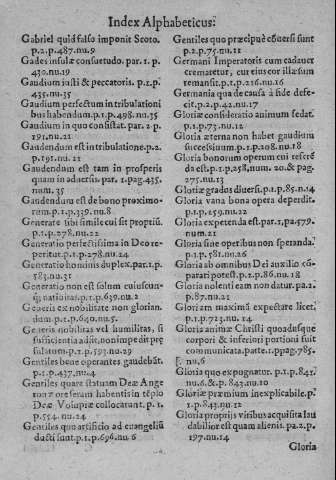 Index Alphabeticus:
Gabriel quid falso imponit Scoto.
p.2.p.487.nu.9
Gades insulæ consuetudo. par. 1. p.
430.nu.19
Gaudium iusti & peccatoris. p.1.p.
435.nu.35
Gaudium perfectum in tribulationi
bus habendum.p.1.p.498.nu.35
Gaudium in quo consistat. par.2 p.
191.nu.21
Gaudendum est in tribulatione.p.2.
p.191.nu.21
Gaudendum est tam in prosperis
quam in aduersis. par. 1.pag.435.
num.35
Gaudendum est de bono proximo-
rum.p.1.p.339.nu.8
Generare sibi simile cui sit propriũ.
p.1.p.278.nu.22
Generatio perfectissima in Deo re-
peritur.p.1.p.278.nu.24
Generatio hominis duplex.par.1.p.
583.nu.31
Generatio non est solum cuiuscun-
q; nationis.p.1.p.639.nu.2
Generis ex nobilitate non glorian.
dum.p.1.p.640.nu.5
Generis nobilitas vel humilitas, si
sufficientia adsit, non impedit præ
sulatum.p.1.p.593.nu.29
Gentiles bene operantes gaudebãt.
p.1.p.437.nu.44
Gentiles quare statuam Deæ Ange
ronæ ore seram habentis in tẽplo
Deæ Volupiæ collocarunt. p.1.
p.554.nu.24
Gentiles quo artificio ad euangeliũ
ducti sunt.p.1.p.696.nu.6
Gentiles quo præcipuè cõuersi sunt
p.2.p.75.nu.11
Germani Imperatoris cum cadauer
cremaretur, cur eius cor illæsum
remansit.p.1.p.216.nu.16
Germania qua de causa à fide defe-
cit.p.2.p.42.nu.17
Gloriæ consideratio animum sedat.
p.1.p.73.nu.12
Gloria æterna non habet gaudium
successiuum.p.1.p.208.nu.18
Gloria bonorum operum cui referẽ
da est.p.1.p.258,num. 20.& pag.
277.nu.13
Gloriæ gradus diuersi.p.1.p.85.n.14
Gloria vana bona opera deperdit.
p.1.p.159.nu.22
Gloria expetenda est.par.1.p2.579.
num.21
Gloria sine operibus non speranda.
p.1.p.581.nu.26
Gloria ab omnibus Dei auxilio cõ-
parari potest.p.1.p.86.nu.18
Gloria nolenti eam non datur.pa.2.
p.87.nu.21
Gloriam maximã expectare licet.
p.1.p.723.nu.14
Gloria animæ Christi quoadusque
corpori & inferiori portioni fuit
communicata.parte.1.ppag.785.
nu,6
Gloria quo expugnatur. p.1.p.841.
nu.6.& p. 843.nu.10
Gloriæ præmium inexplicabile.p.
1.p.843.nu.12
Gloria proprijs viribus acquisita lau
dabilior est quam alienis. pa.2.p.
197.nu.14
Gloria